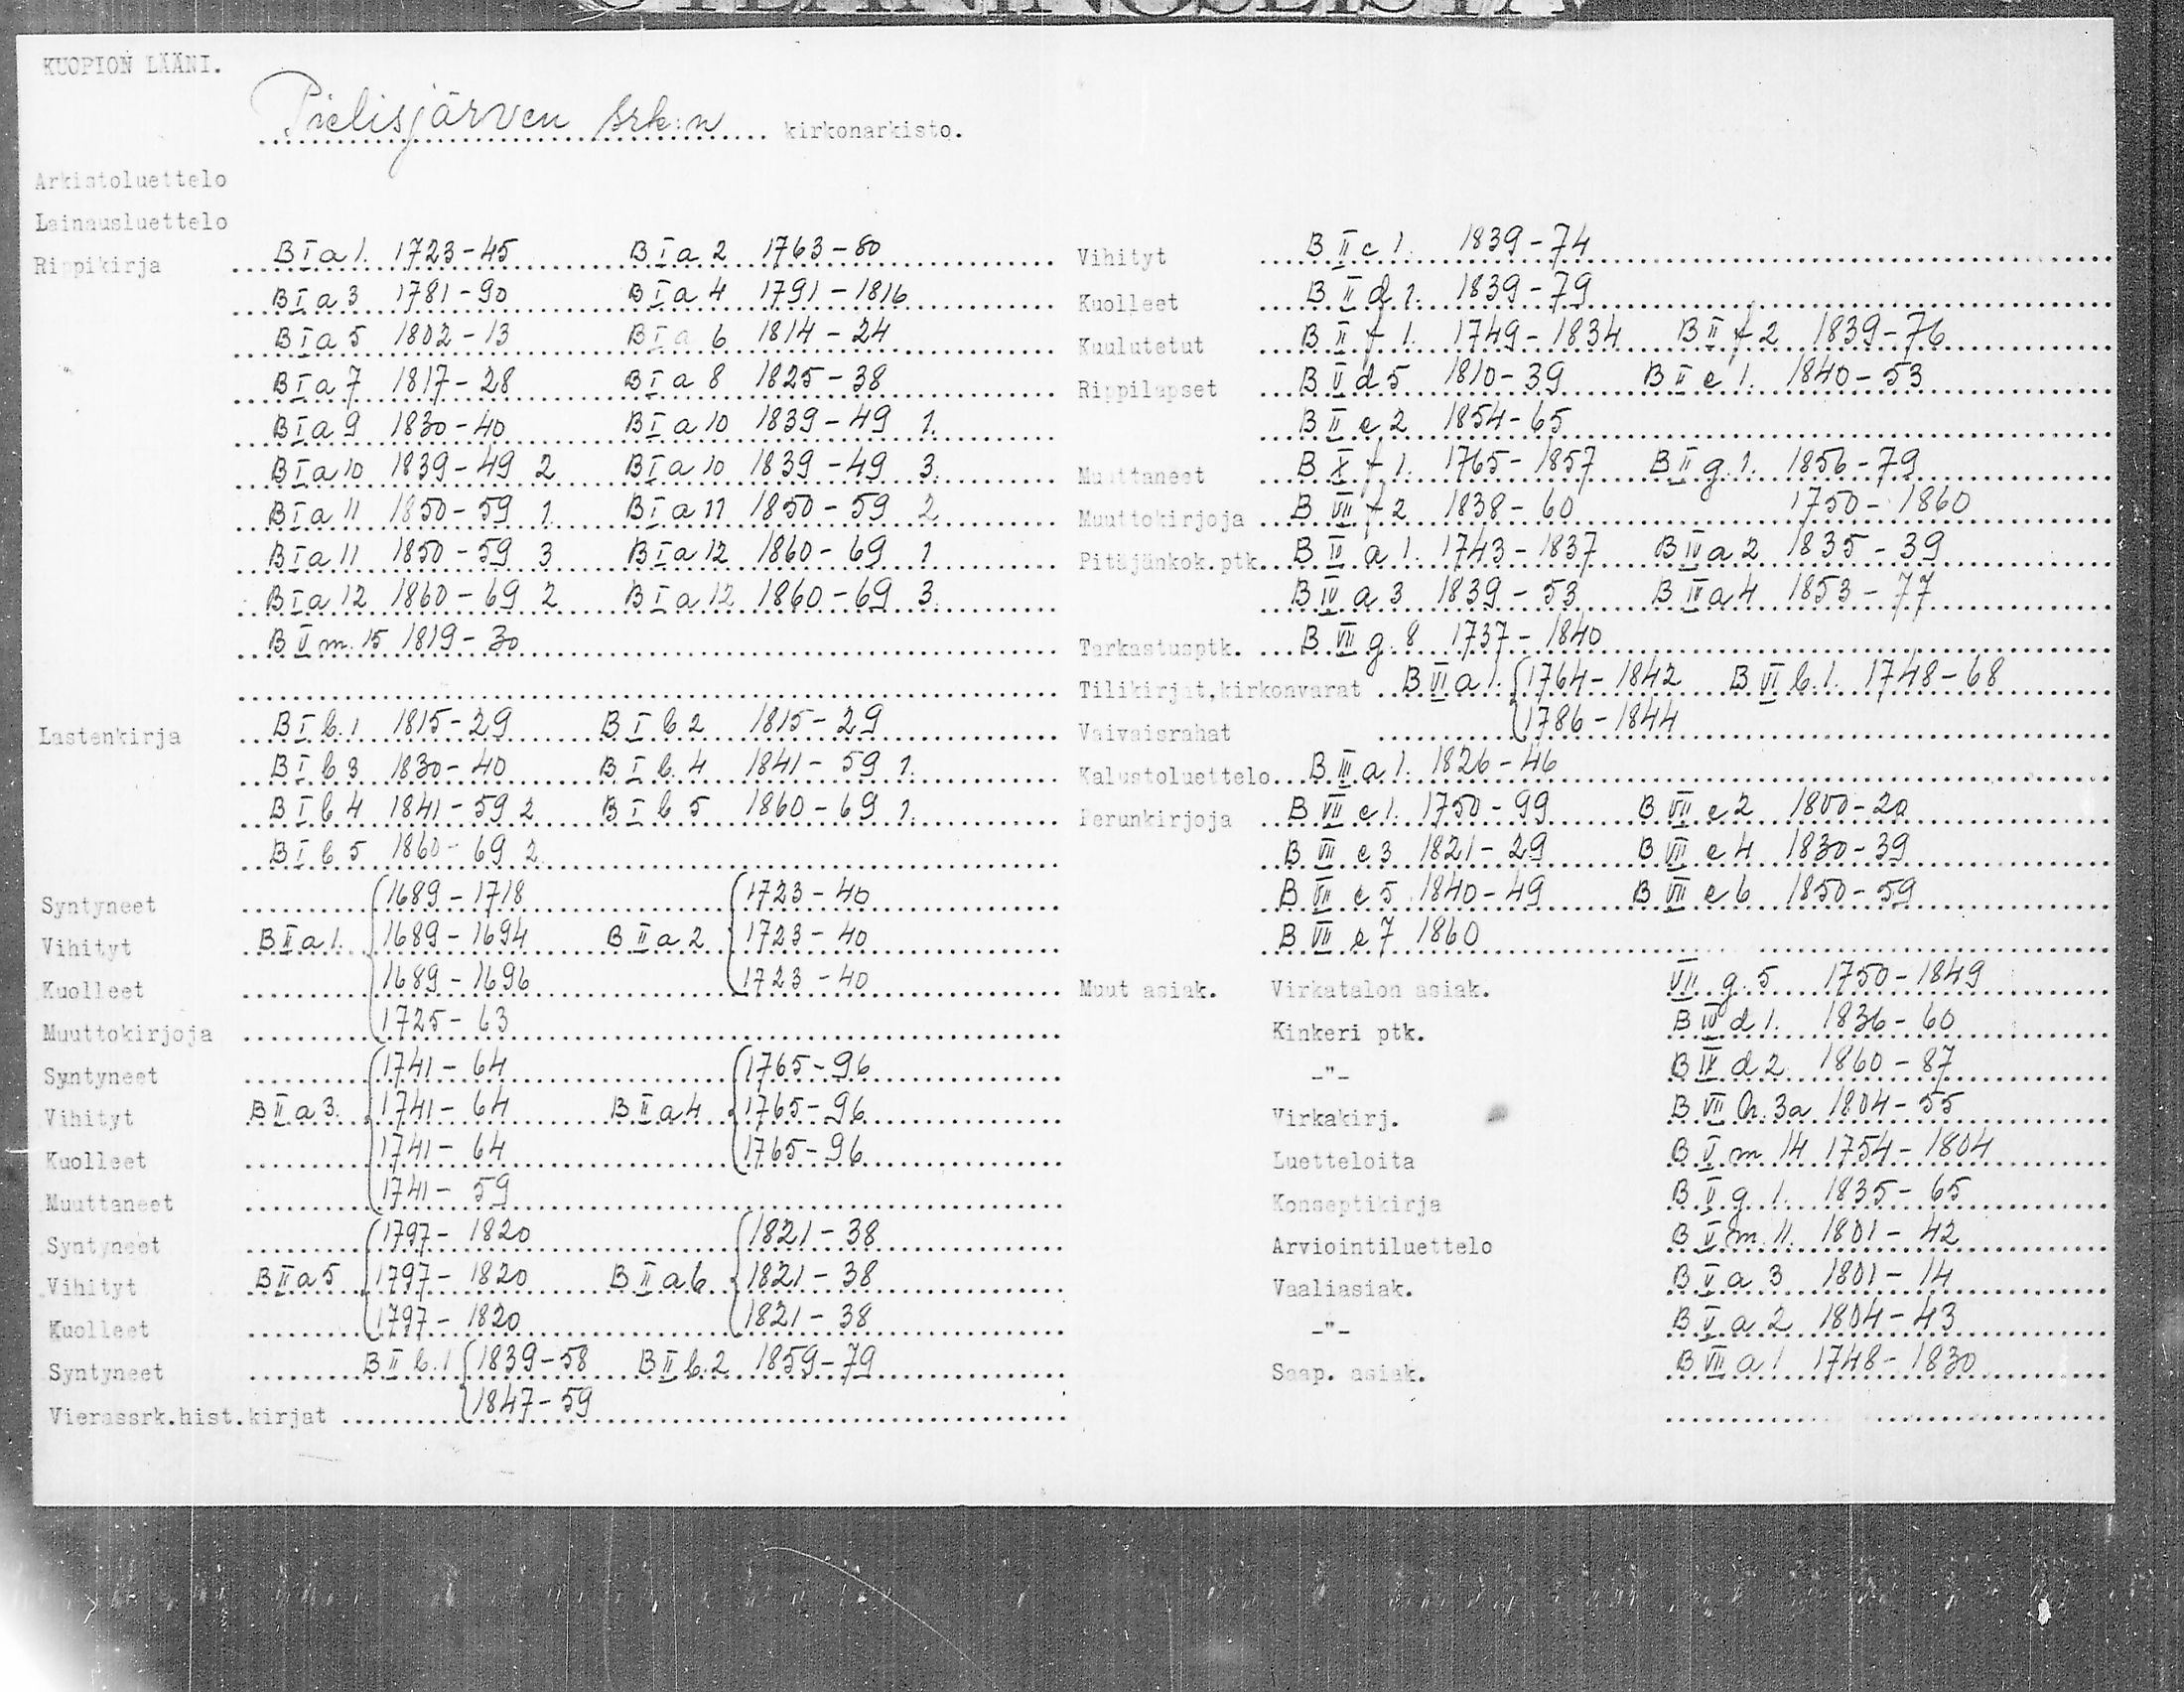 KUOPION LÄÄNI.
Pielisjärven srk:n kirkonarkisto.
Arkistoluettelo
Lainausluettelo
Rippikirja B I a 1. 1723-45 B I a 2 1763-80
B I a 3 1781-90 B I a 4 1791-1816
B I a 5 1802-13 B I a 6 1814-24
B I a 7 1817-28 B I a 8 1825-38
B I a 9 1830-40 B I a 10 1839-49 1.
B I a 10 1839-49 2 B I a 10 1839-49 3.
B I a 11 1850-59 1. B I a 11 1850-59 2
B I a 11 1850-59 3 B I a 12 1860-69 1
B I a 12 1860-69 2 B I a 12 1860-69 3.
B V m. 15 1819-30
Lastenkirja B I b. 1 1815-29 B I b 2 1815-29
B I b 3 1830-40 B I b. 4 1841-59 1.
B I b 4 1841-59 2 B I b 5 1860-69 1.
B I b 5 1860-69 2
Syntyneet 1689-1718 1723-40
Vihityt B II a 1. 1689-1694 B II a 2 1723-40
Kuolleet 1689-1696 1723-40
Muuttokirjoja 1725-63
Syntyneet 1741-64 1765-96
Vihityt B II a 3. 1741-64 B II a 4 1765-96
Kuolleet 1741-64 1765-96
Muuttaneet 1741-59
Syntyneet 1797-1820 1821-38
Vihityt B II a 5 1797-1820 B II a 6 1821-38
Kuolleet 1797-1820 1821-38
Syntyneet B II b. 1 1839-58 B II b. 2 1859-79
Vierassrk.hist.kirjat 1847-59
Vihityt B II c 1. 1839-74
Kuolleet B II d 1. 1839-79
Kuulutetut B II f 1. 1749-1834 B II f 2 1839-76
Rippilapset B V d 5 1810-39 B II e 1. 1840-53
B II e 2 1854-65
Muuttaneet B X f 1. 1765-1857 B II g. 1. 1856-79
Muuttokirjoja B VII f 2 1838-60 1750-1860
Pitäjänkok.ptk. B IV a 1. 1743-1837 B IV a 2 1835-39
B IV a 3 1839-53 B IV a 4 1853-77
Tarkastusptk. B VII g. 8 1737-1840
Tilikirjat,kirkonvarat B VI a 1. 1764-1842 B VI b. 1. 1748-68
Vaivaisrahat 1786-1844
Kalustoluettelo B III a 1. 1826-46
Perunkirjoja B VII e 1. 1750-99 B VII e 2 1800-20
B VII e 3 1821-29 B VII e 4 1830-39
B VII e 5 1840-49 B VII e 6 1850-59
B VII e 7 1860
Muut asiak. Virkatalon asiak. VII g. 5 1750-1849
Kinkeri ptk. B IV d 1. 1836-60
-"- B IV d 2 1860-87
Virkakirj. B VII h. 3a 1804-55
Luetteloita B V m 14 1754-1804
Konseptikirja B V g. 1. 1835-65
Arviointiluettelo B V m. 11. 1801-42
Vaaliasiak. B V a 3 1801-14
-"- B V a 2 1804-43
Saap. asiak. B VII a 1 1748-1830